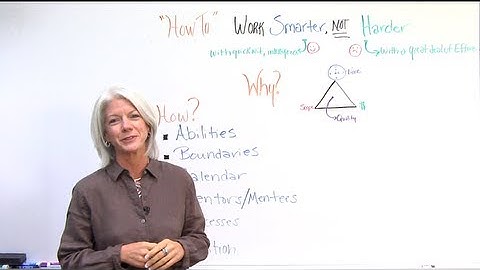 "How To" Work Smarter, NOT Harder
with quick wit, intelligence
with a great deal of Effort
Why?
Time
Scope
$
Quality
How?
Abilities
Boundaries
Calendar
entors/Mentees
esses
tion